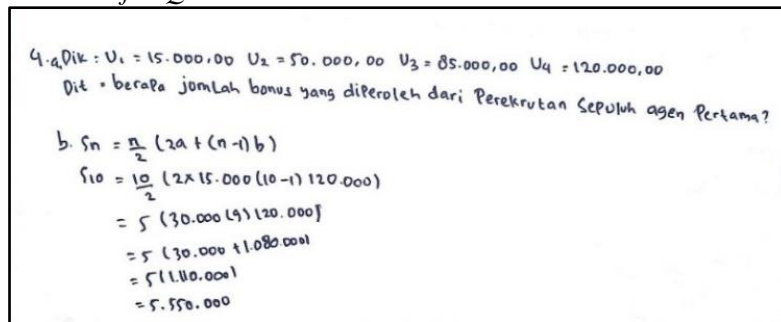 4.a. Dik : U₁ = 15.000,00 U₂ = 50.000,00 U₃ = 85.000,00 U₄ = 120.000,00
Dit = berapa jomlah bonus yang diperoleh dari Perekrutan Sepuluh agen Pertama?
b. Sn = n/2 (2a + (n-1)b)
S₁₀ = 10/2 (2x15.000(10-1)120.000)
= 5 (30.000 (9) 120.000)
= 5 (30.000 + 1.080.000)
= 5 (1.110.000)
= 5.550.000